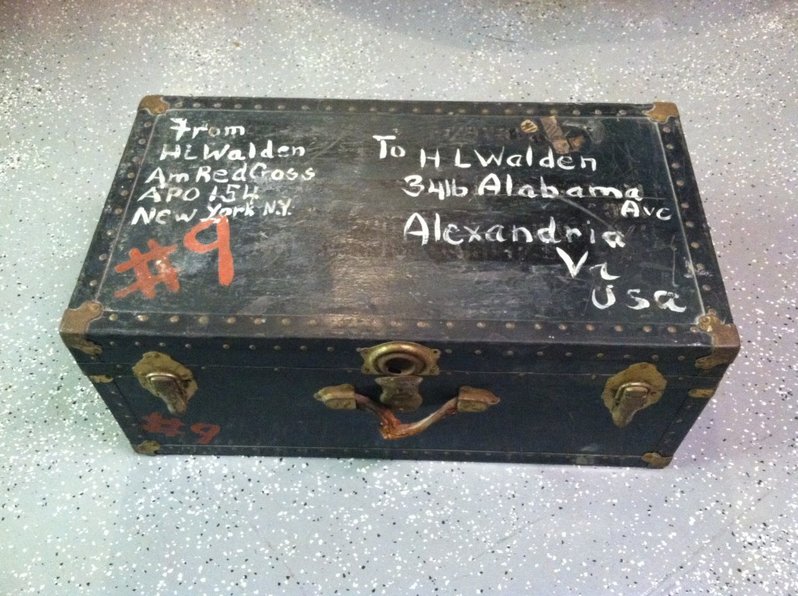 From
HL Walden
Am Red Cross
APO 154
New York N.Y.
#9
To H L Walden
3416 Alabama
Ave
Alexandria
Va
USa
#9